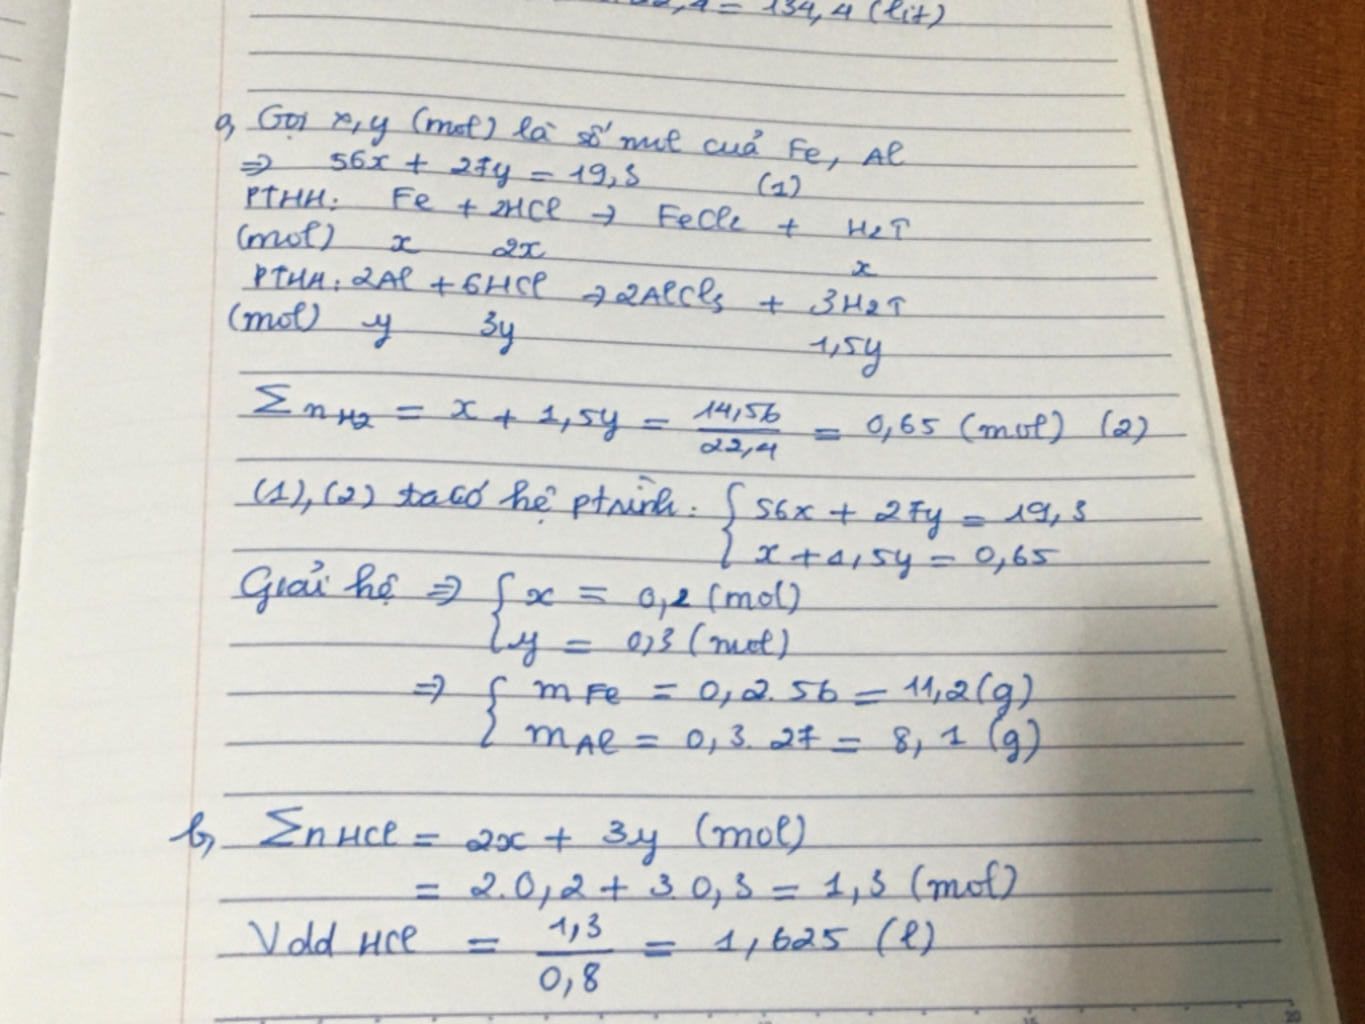 22,4 = 134,4 (lít)
a, Gọi x, y (mol) là số mol cuả Fe, Al
=> 56x + 27y = 19,3 (1)
PTHH: Fe + 2HCl → FeCl2 + H2↑
(mol) x 2x x
PTHH: 2Al + 6HCl → 2AlCl3 + 3H2↑
(mol) y 3y 1,5y
Σn H2 = x + 1,5y = 14,56/22,4 = 0,65 (mol) (2)
(1), (2) ta có hệ ptrình: { 56x + 27y = 19,3
x + 1,5y = 0,65
Giải hệ => { x = 0,2 (mol)
y = 0,3 (mol)
=> { m Fe = 0,2.56 = 11,2 (g)
m Al = 0,3.27 = 8,1 (g)
b, Σn HCl = 2x + 3y (mol)
= 2.0,2 + 3.0,3 = 1,3 (mol)
Vdd HCl = 1,3/0,8 = 1,625 (l)
20